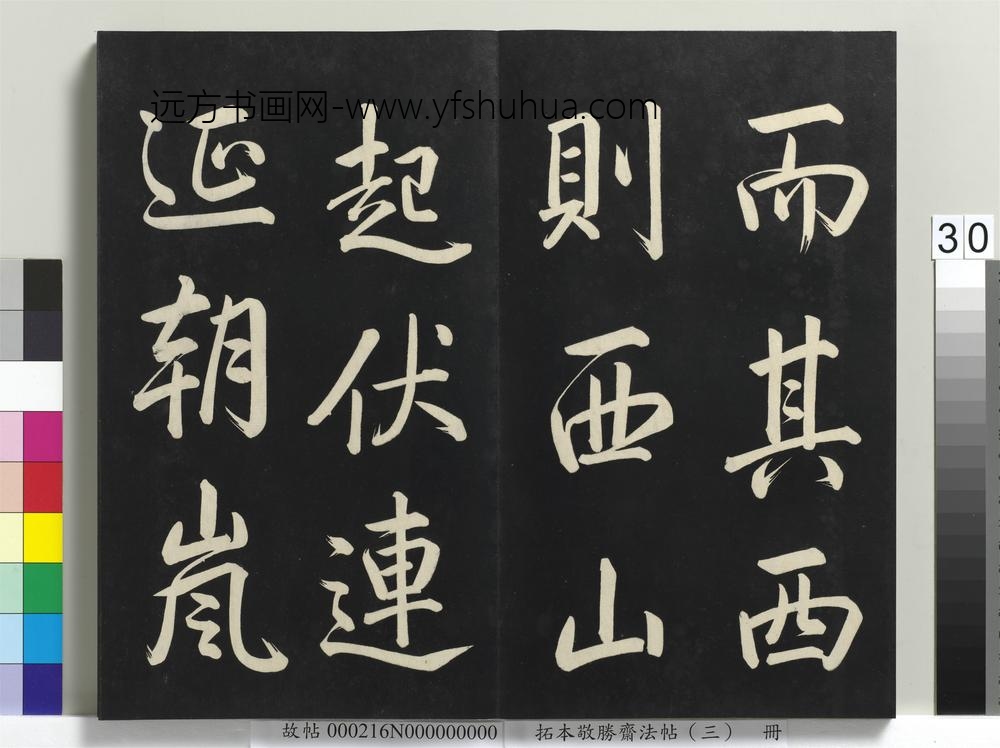 远方书画网-www.yfshuhua.com
而其西
則西山
起伏連
延朝嵐
30
故帖 000216N000000000 拓本敬勝齋法帖（三） 冊